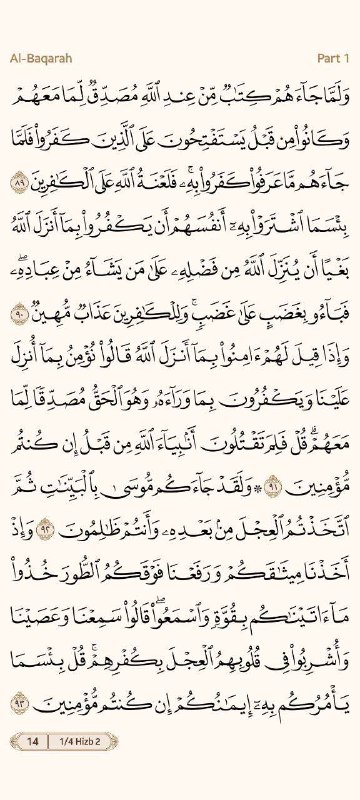 Al-Baqarah Part 1
وَلَمَّا جَآءَهُمْ كِتَٰبٌ مِّنْ عِندِ ٱللَّهِ مُصَدِّقٌ لِّمَا مَعَهُمْ
وَكَانُوا۟ مِن قَبْلُ يَسْتَفْتِحُونَ عَلَى ٱلَّذِينَ كَفَرُوا۟ فَلَمَّا
جَآءَهُم مَّا عَرَفُوا۟ كَفَرُوا۟ بِهِۦ ۚ فَلَعْنَةُ ٱللَّهِ عَلَى ٱلْكَٰفِرِينَ ٨٩
بِئْسَمَا ٱشْتَرَوْا۟ بِهِۦٓ أَنفُسَهُمْ أَن يَكْفُرُوا۟ بِمَآ أَنزَلَ ٱللَّهُ
بَغْيًا أَن يُنَزِّلَ ٱللَّهُ مِن فَضْلِهِۦ عَلَىٰ مَن يَشَآءُ مِنْ عِبَادِهِۦ ۖ
فَبَآءُو بِغَضَبٍ عَلَىٰ غَضَبٍ ۚ وَلِلْكَٰفِرِينَ عَذَابٌ مُّهِينٌ ٩٠
وَإِذَا قِيلَ لَهُمْ ءَامِنُوا۟ بِمَآ أَنزَلَ ٱللَّهُ قَالُوا۟ نُؤْمِنُ بِمَآ أُنزِلَ
عَلَيْنَا وَيَكْفُرُونَ بِمَا وَرَآءَهُۥ وَهُوَ ٱلْحَقُّ مُصَدِّقًا لِّمَا
مَعَهُمْ ۗ قُلْ فَلِمَ تَقْتُلُونَ أَنۢبِيَآءَ ٱللَّهِ مِن قَبْلُ إِن كُنتُم
مُّؤْمِنِينَ ٩١ ۞ وَلَقَدْ جَآءَكُم مُّوسَىٰ بِٱلْبَيِّنَٰتِ ثُمَّ
ٱتَّخَذْتُمُ ٱلْعِجْلَ مِنۢ بَعْدِهِۦ وَأَنتُمْ ظَٰلِمُونَ ٩٢ وَإِذْ
أَخَذْنَا مِيثَٰقَكُمْ وَرَفَعْنَا فَوْقَكُمُ ٱلطُّورَ خُذُوا۟
مَآ ءَاتَيْنَٰكُم بِقُوَّةٍ وَٱسْمَعُوا۟ ۖ قَالُوا۟ سَمِعْنَا وَعَصَيْنَا
وَأُشْرِبُوا۟ فِى قُلُوبِهِمُ ٱلْعِجْلَ بِكُفْرِهِمْ ۚ قُلْ بِئْسَمَا
يَأْمُرُكُم بِهِۦٓ إِيمَٰنُكُمْ إِن كُنتُم مُّؤْمِنِينَ ٩٣
14 | 1/4 Hizb 2